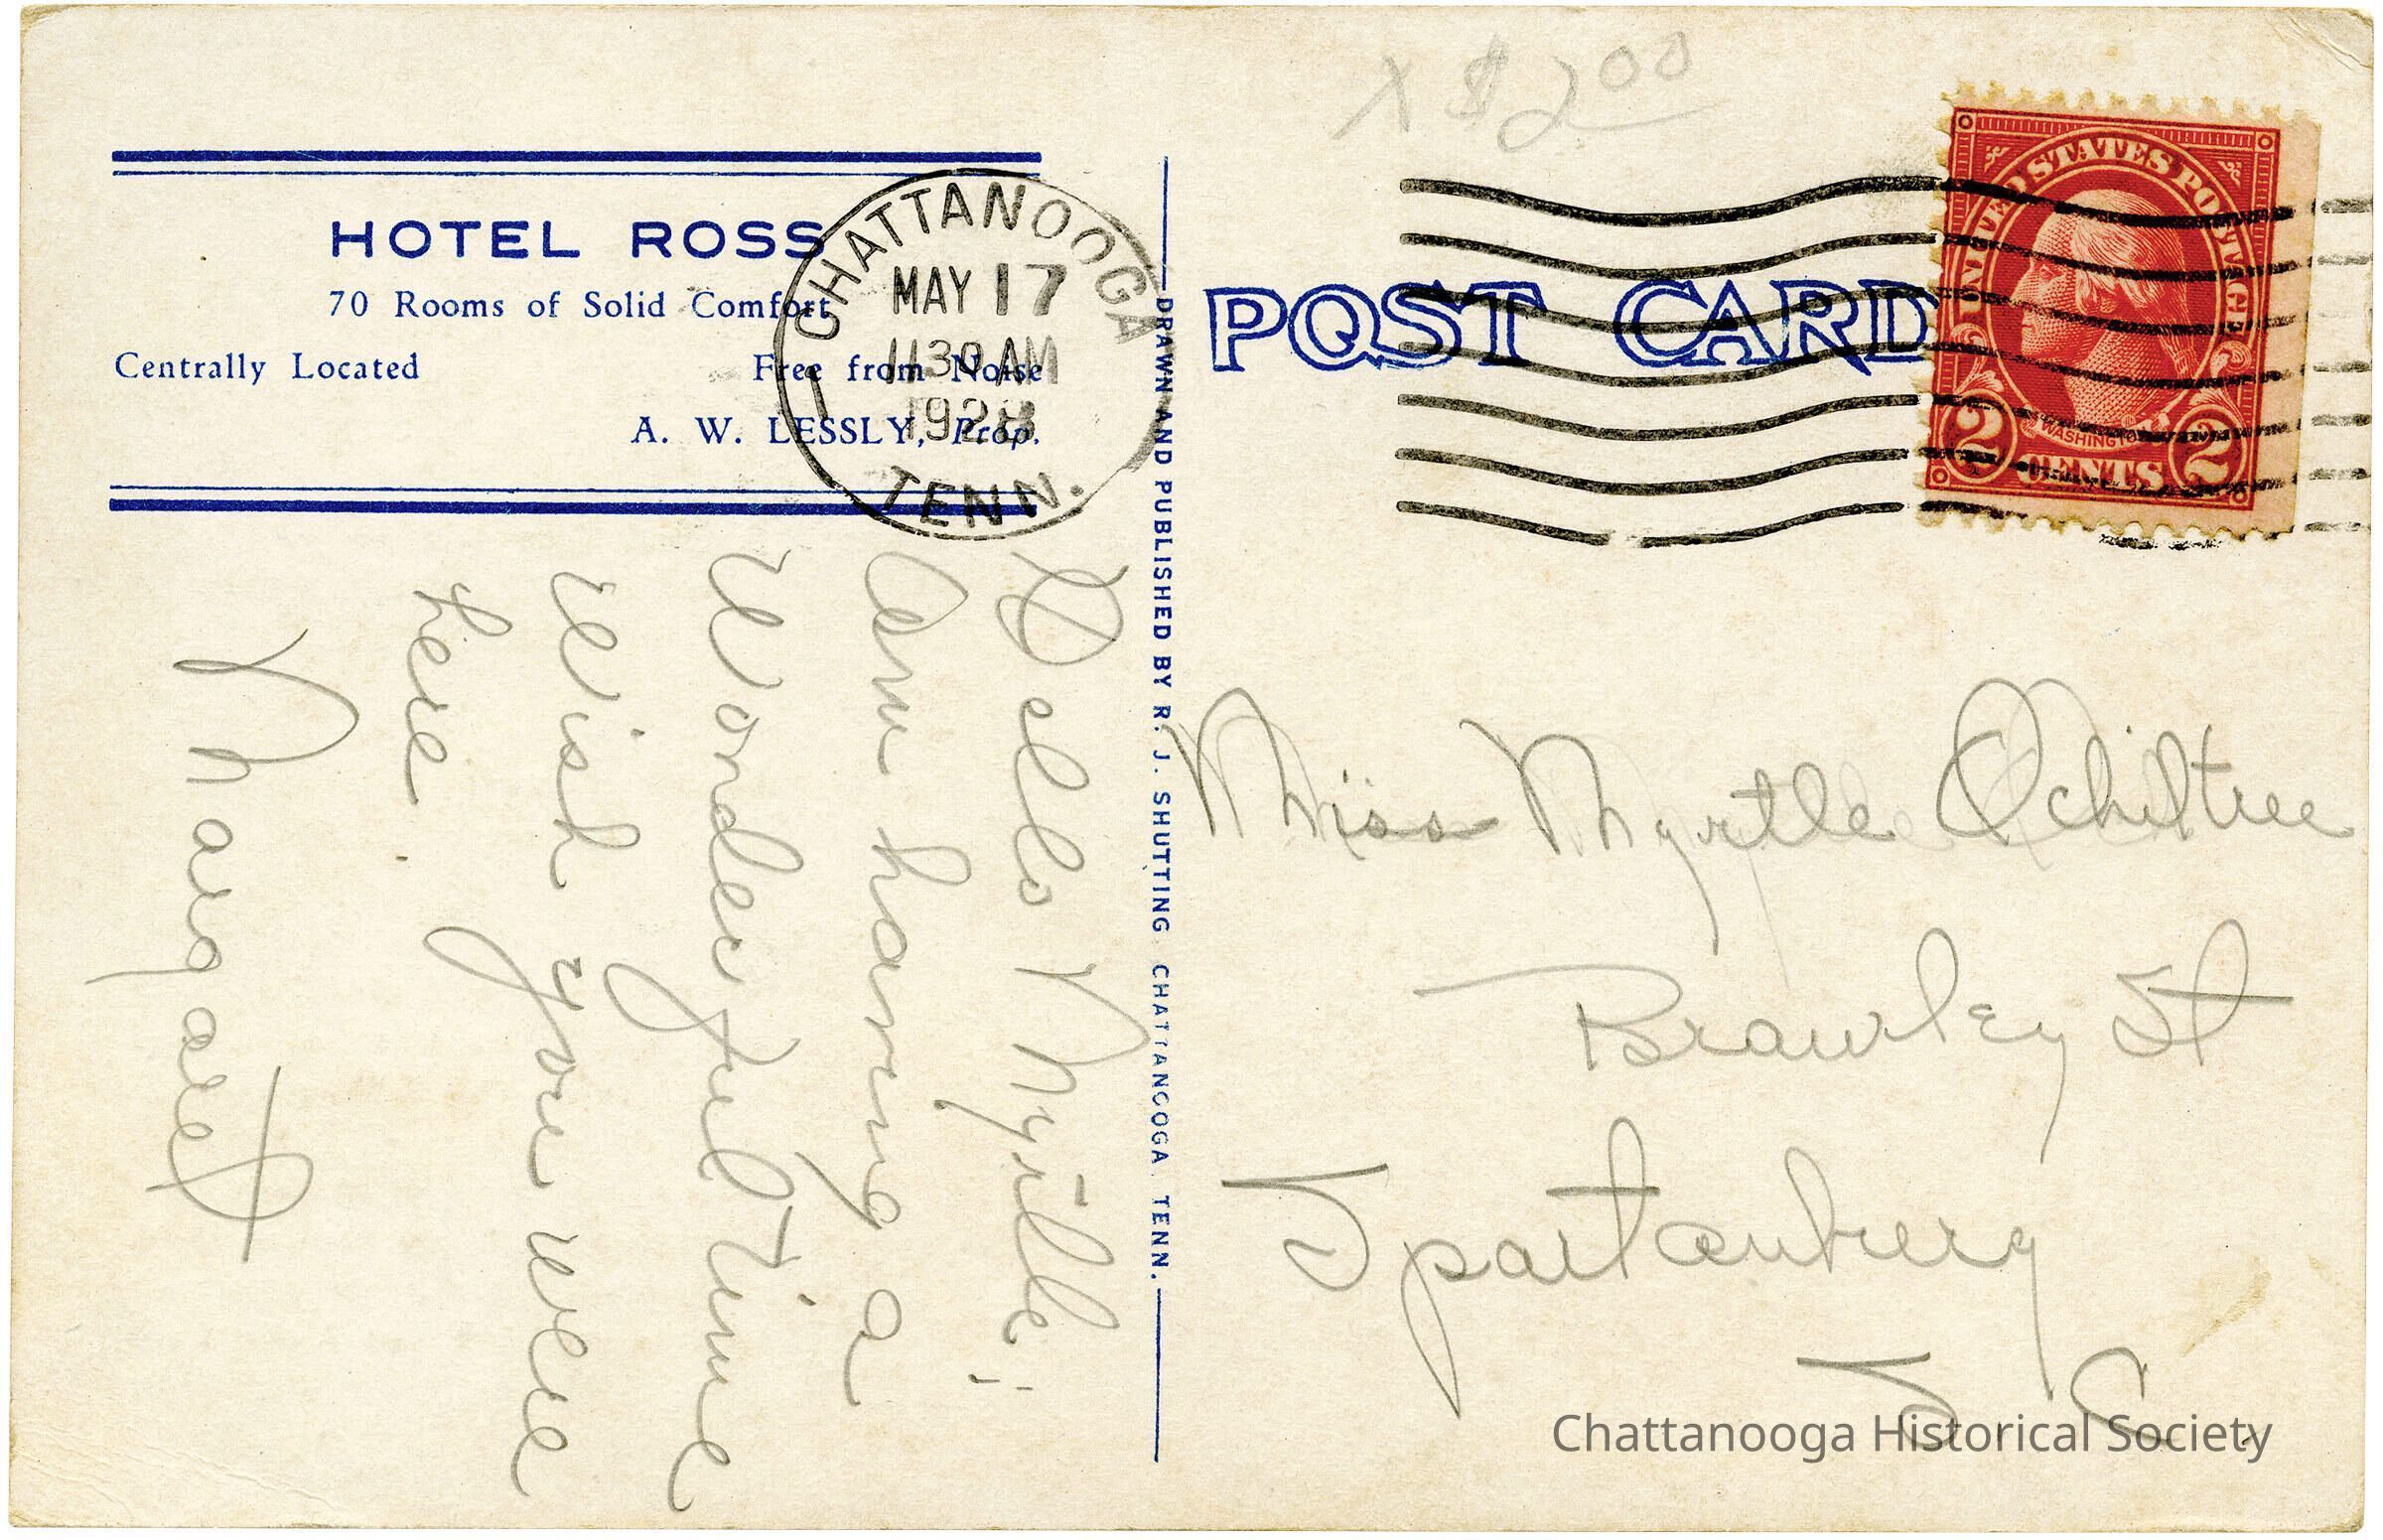 X $2.00
HOTEL ROSS
70 Rooms of Solid Comfort
Centrally Located Free from Noise
A. W. LESSLY, Prop.
CHATTANOOGA
MAY 17
1130 AM
1928
1
TENN.
DRAWN AND PUBLISHED BY R. J. SHUTTING CHATTANOOGA. TENN.
POST CARD
UNITED STATES POSTAGE
WASHINGTON
2 CENTS 2
Hello Myrtle;
Am having a
Wonderful time
Wish you were
here.
Margaret
Miss Myrtle Ochiltree
Brawley St
Spartanburg
S. C.
Chattanooga Historical Society